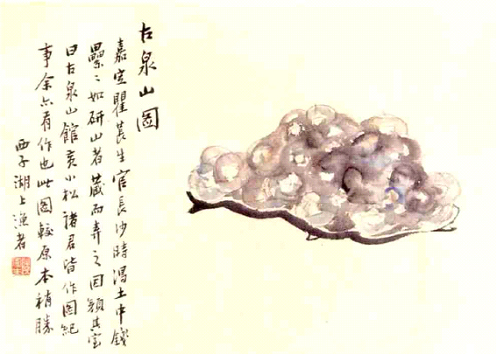 古泉山圖
嘉定瞿萇生官長沙時淂土中錢
纍〻如研山者藏而弆之因顏其室
曰古泉山館黃小松諸君皆作圖紀
事余亦有作也此圖較原本稍勝
西子湖上漁者